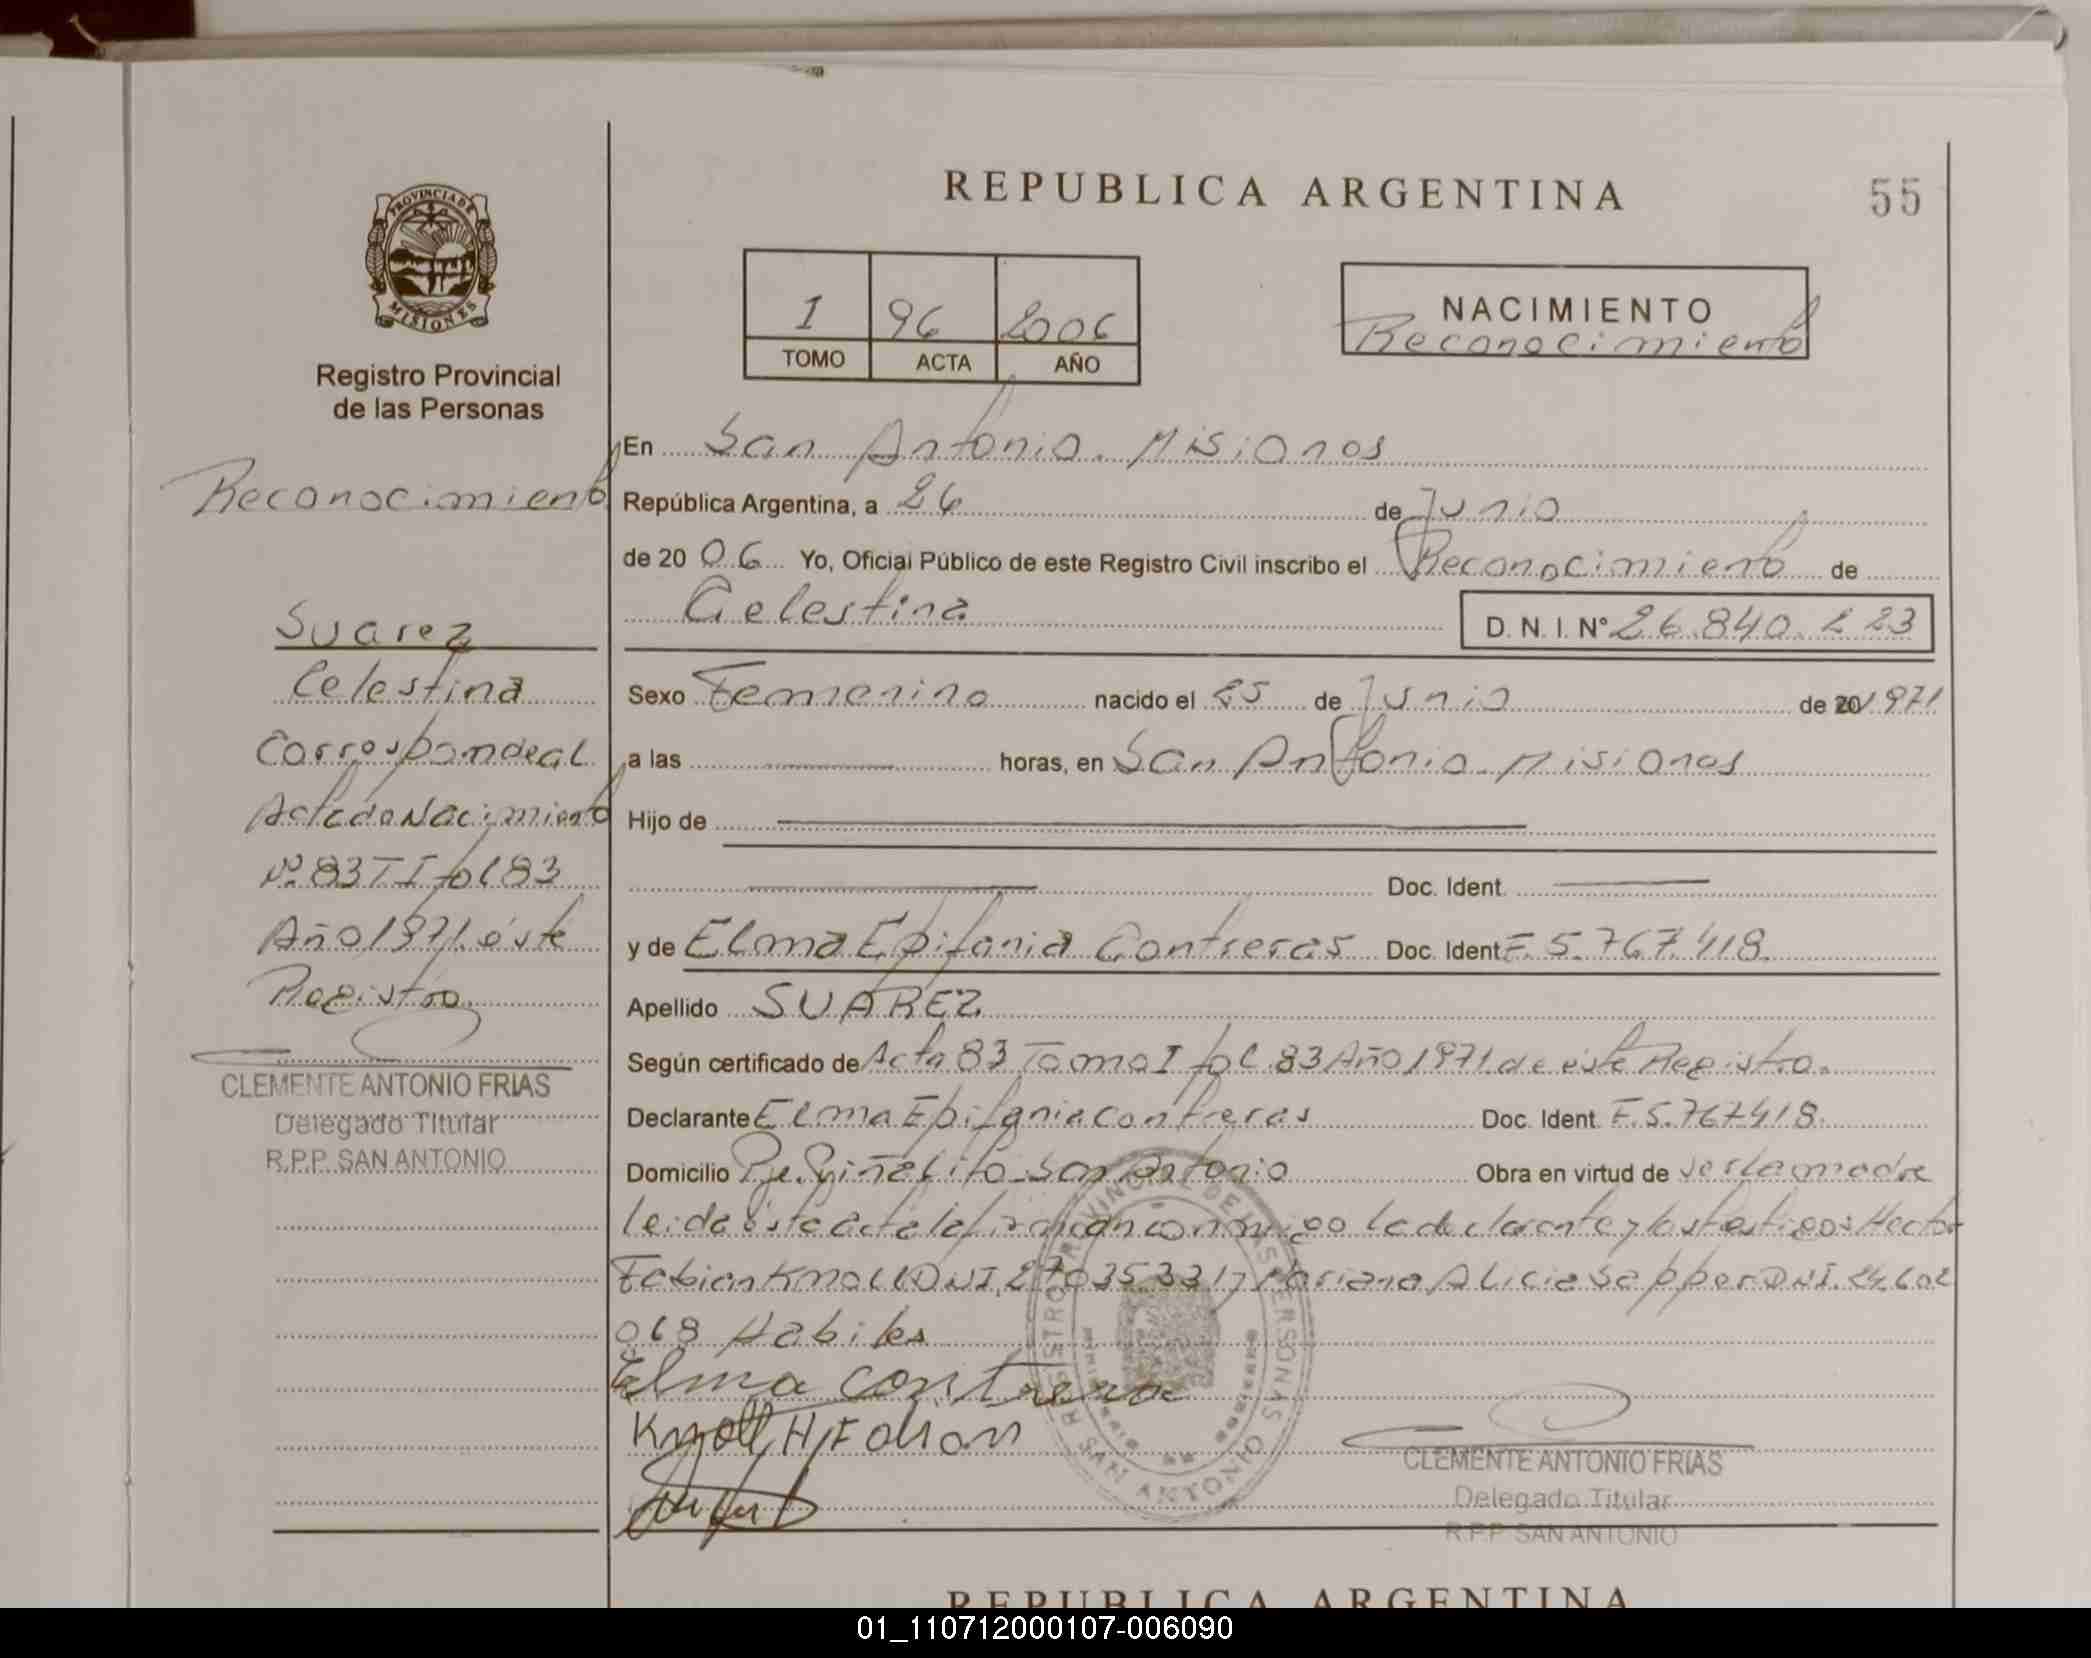 REPUBLICA ARGENTINA
55
PROVINCIA DE
MISIONES
Registro Provincial
de las Personas
I 96 2006
TOMO ACTA AÑO
NACIMIENTO
Reconocimiento
Reconocimiento
Suarez
Celestina
Corresponde al
Acta de Nacimiento
Nº 83 T I fol 83
Año 1971 éste
Registro.
CLEMENTE ANTONIO FRIAS
Delegado Titular
R.P.P. SAN ANTONIO
En San Antonio. Misiones
República Argentina, a 26 de Junio
de 20 06 Yo, Oficial Público de este Registro Civil inscribo el Reconocimiento de
Celestina D. N. I. Nº 26.840.223
Sexo Femenino nacido el 25 de Junio de 20 1971
a las horas, en San Antonio. Misiones
Hijo de
Doc. Ident.
y de Elma Epifania Contreras Doc. Ident. F. 5.767.418.
Apellido SUAREZ
Según certificado de Acta 83 Tomo I fol. 83 Año 1971. de éste Registro.
Declarante Elma Epifania Contreras Doc. Ident. F. 5.767.418.
Domicilio Pje. Piñalito San Antonio Obra en virtud de ser la madre
leida ésta acta la firman conmigo la declarante y los testigos Hector
Fabian Knoll DNI. 27035331 y Mariana Alicia Sapper DNI. 24.602
068 Habiles
Elma contrera
Knoll, H, Fabian
REGISTRO PROVINCIAL DE LAS PERSONAS
SAN ANTONIO
CLEMENTE ANTONIO FRIAS
Delegado Titular
R.P.P. SAN ANTONIO
REPUBLICA ARGENTINA
01_110712000107-006090